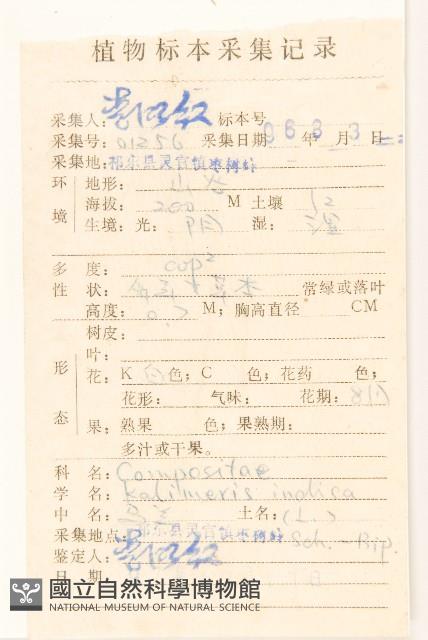 植物标本采集记录
采集人： 标本号
采集号：01256 采集日期 96 3 年 3 月 日
采集地：祁东县灵官镇
环境 地形：山谷
海拔：200 M 土壤
生境：光：阴 湿：湿
多度：cop²
性状： 常绿或落叶
高度：0. M；胸高直径 CM
树皮：
形态 叶：
花：K 白色；C 色；花药 色；
花形： 气味： 花期：
果：熟果 色；果熟期：
多汁或干果。
科名：Compositae
学名：Kalimeris indica
中名：马兰 土名：(L.)
采集地点：祁东县灵官镇 Sch.-Bip.
鉴定人：
日期
國立自然科學博物館
NATIONAL MUSEUM OF NATURAL SCIENCE